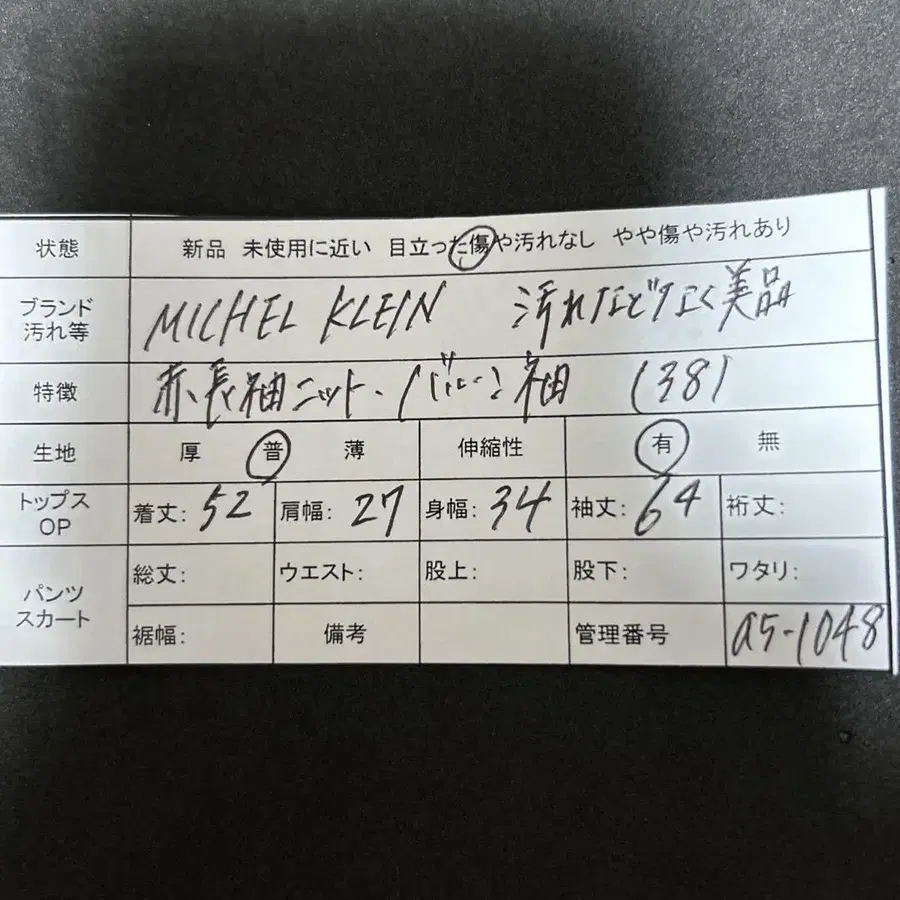 状態 新品 未使用に近い 目立った傷や汚れなし やや傷や汚れあり
ブランド
汚れ等 MICHEL KLEIN 汚れなどなく美品
特徴 赤、長袖ニット・バルーン袖 (38)
生地 厚 普 薄 伸縮性 有 無
トップス
OP 着丈: 52 肩幅: 27 身幅: 34 袖丈: 64 裄丈:
パンツ
スカート 総丈: ウエスト: 股上: 股下: ワタリ:
裾幅: 備考 管理番号 a5-1048